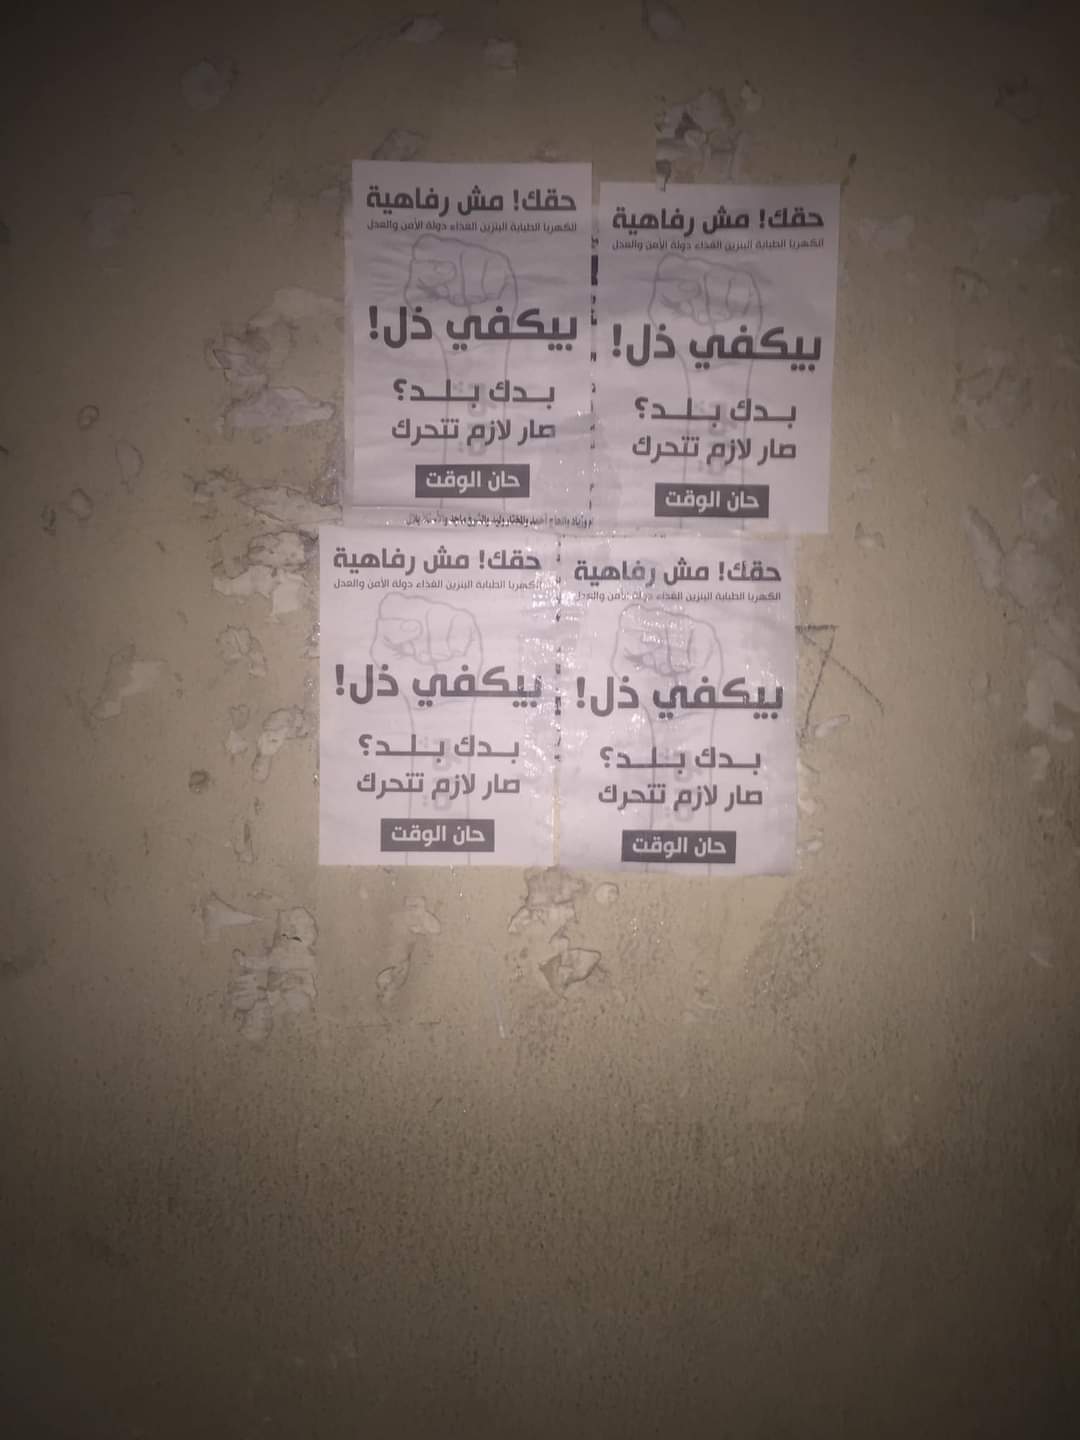 حقك! مش رفاهية
الكهربا الطبابة البنزين الغذاء دولة الأمن والعدل
بيكفي ذل!
بـدك بـلـد؟
صار لازم تتحرك
حان الوقت
حقك! مش رفاهية
الكهربا الطبابة البنزين الغذاء دولة الأمن والعدل
بيكفي ذل!
بـدك بـلـد؟
صار لازم تتحرك
حان الوقت
حقك! مش رفاهية
الكهربا الطبابة البنزين الغذاء دولة الأمن والعدل
بيكفي ذل!
بـدك بـلـد؟
صار لازم تتحرك
حان الوقت
حقك! مش رفاهية
الكهربا الطبابة البنزين الغذاء دولة الأمن والعدل
بيكفي ذل!
بـدك بـلـد؟
صار لازم تتحرك
حان الوقت